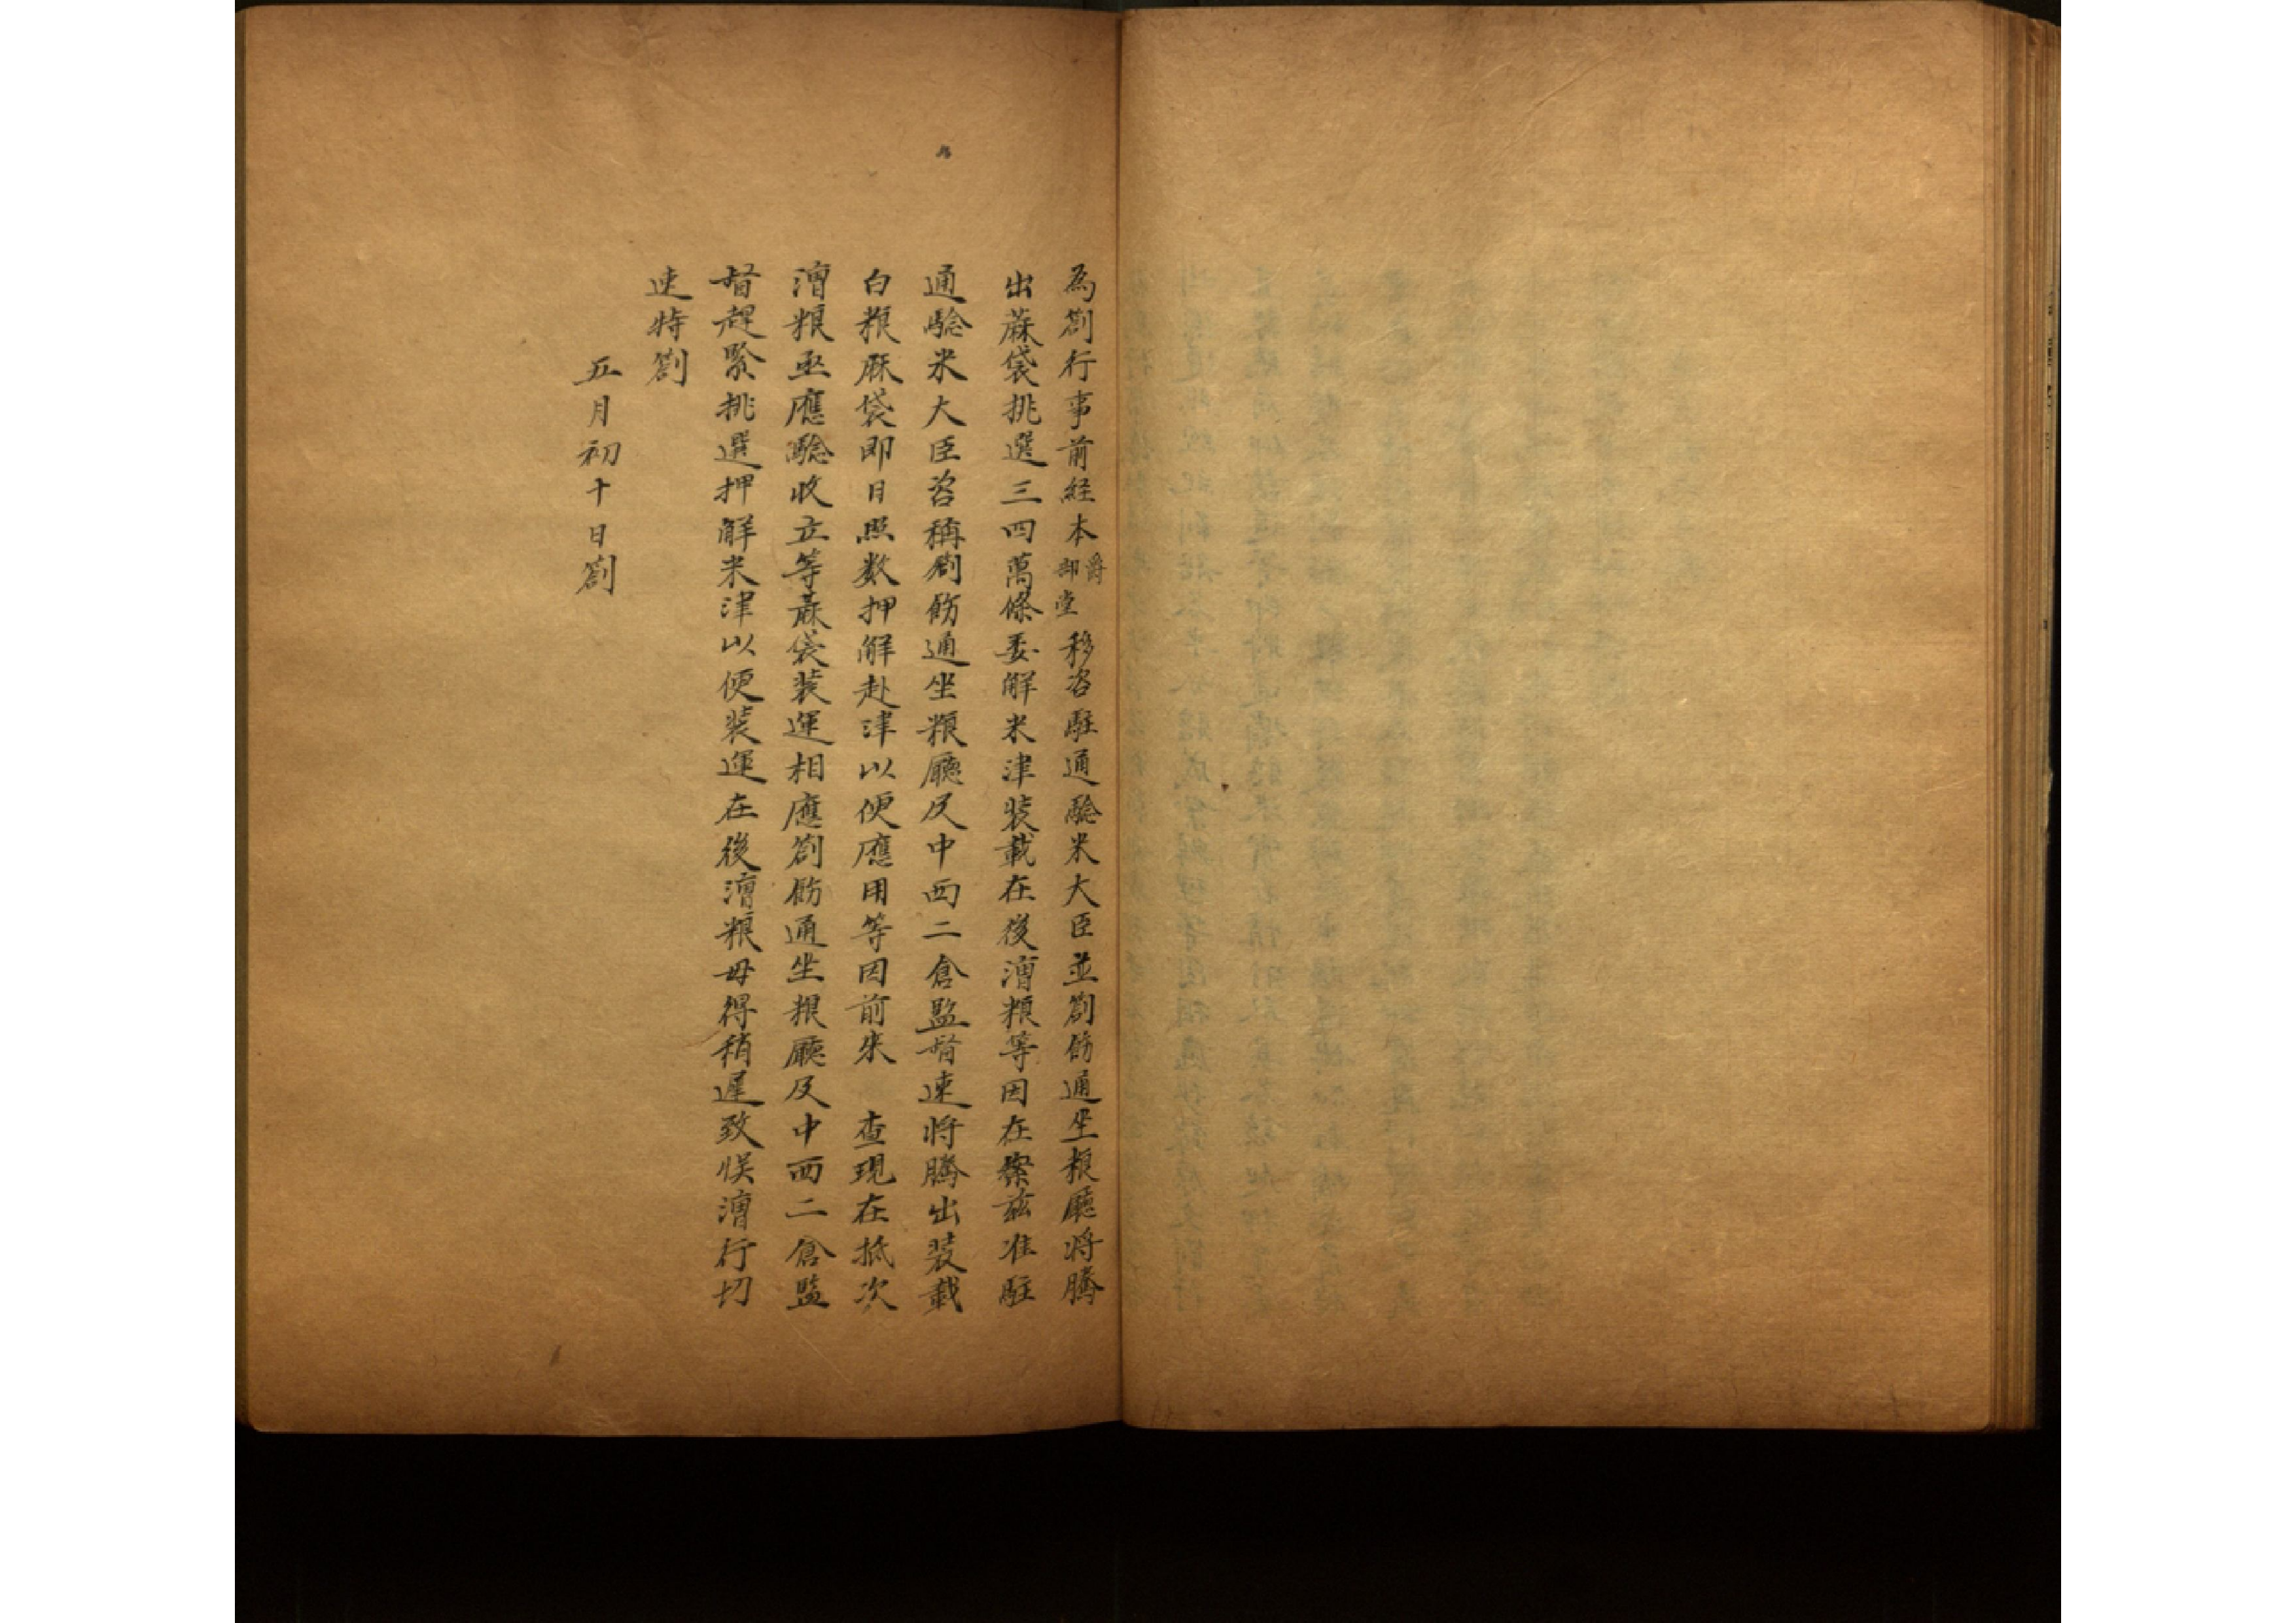 為劄行事前経本爵部堂移咨駐通驗米大臣並劄飭通坐粮廳将騰
出蔴袋挑選三四萬條委解来津装載在後漕粮等因在案茲准駐
通驗米大臣咨稱劄飭通坐粮廳及中西二倉監督速将騰出装載
白粮蔴袋即日照数押解赴津以便應用等因前来查現在抵次
漕粮亟應驗收立等蔴袋装運相應劄飭通坐粮廳及中西二倉監
督趕緊挑選押解来津以便装運在後漕粮毋得稍遲致悮漕行切
速特劄
五月初十日劄